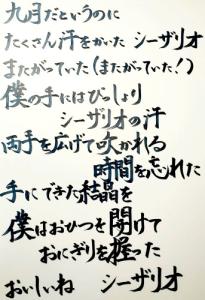 九月だというのに
たくさん汗をかいた シーザリオ
またがっていた(またがっていた!)
僕の手にはびっしょり
シーザリオの汗
両手を広げて吹かれる
時間を忘れた
手にできた結晶を
僕はおひつを開けて
おにぎりを握った
おいしいね シーザリオ